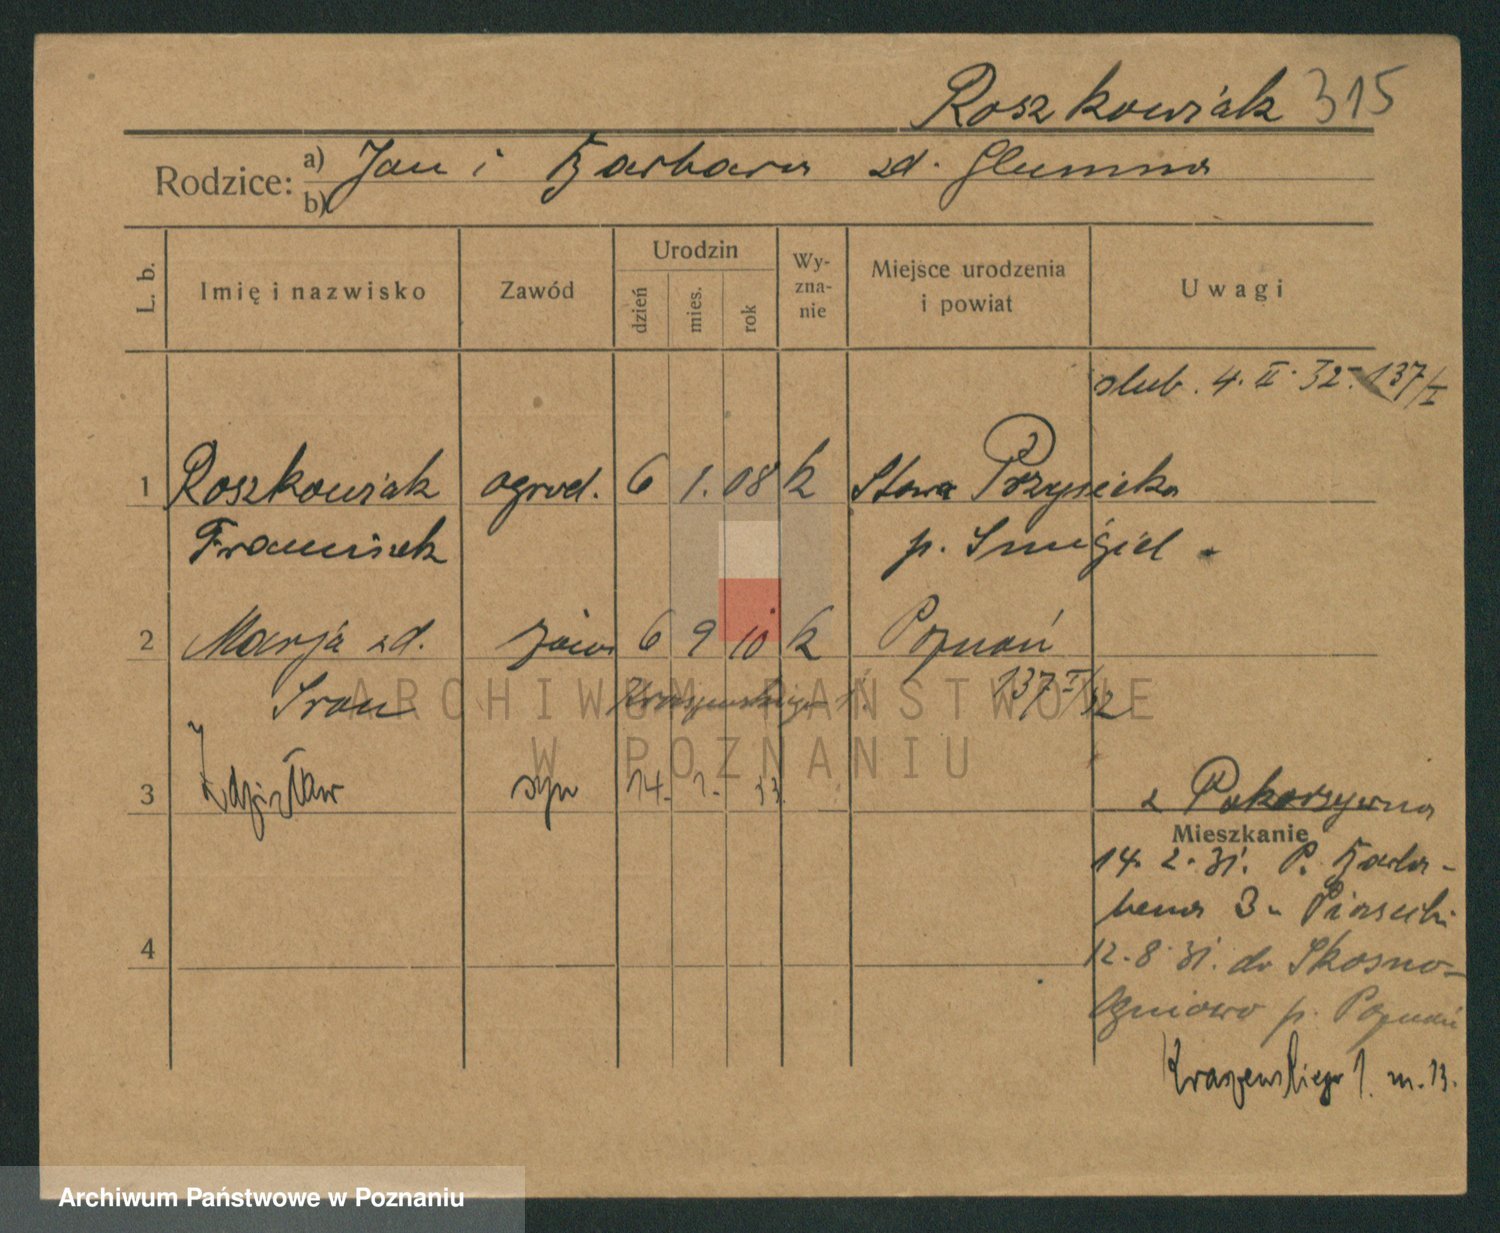 Roszkowiak 315
Rodzice: a) Jan i Barbara zd. Glumna
b)
L. b.
Imię i nazwisko
Zawód
Urodzin
dzień
mies.
rok
Wy-
zna-
nie
Miejsce urodzenia
i powiat
Uwagi
slub. 4. II. 32. 137/I
1 Roszkowiak ogrod. 6 1. 08 k Stara Przysieka
Franciszek p. Smigiel
2 Marja zd. żona 6 9 10 k Poznań
Sron Kraszewskiego 1. 137 I/32
3 Zdzisław syn 14. 1. 33.
z Pokorzywna
Mieszkanie
14. 2. 31. P. Barla-
bena 3 u Piasecki
12. 8. 31. do Skosno-
p. Poznań
Kraszewskiego 1. m. 13.
4
ARCHIWUM PAŃSTWOWE
W POZNANIU
Archiwum Państwowe w Poznaniu